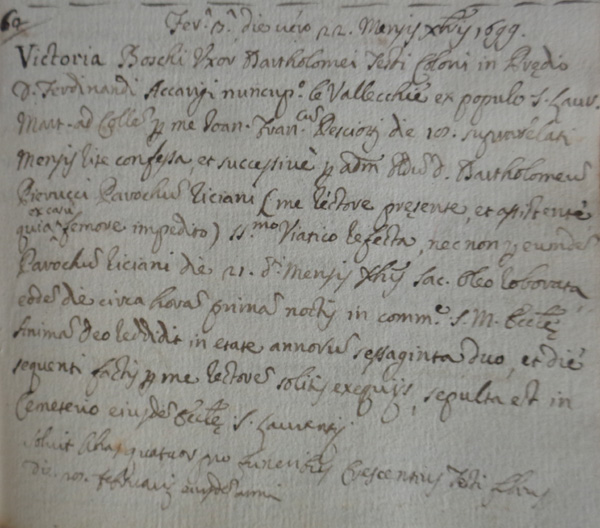 60
Fer.ª 3.ª die vero 22. Mensis Xbris 1699.
Victoria Boschi Uxor Bartholomei Testi Coloni in Prędio
D. Ferdinandi Accarigi nuncup.º le Vallecchie ex populo S. Laur.
Mart. ad Colle p me Ioan. Fran.cũ Pesciori die 10. supraelati
Mensis rite confessa, et successivè p adm Rdũ D. Bartholomeũ
Pierucci Parochũ Liciani (me Rectore pręsente, et assistente
ex casu
quia femore impedito) SS.mo Viatico refecta, nec non p eundẽ
Parochũ Liciani die 21. d.i Mensis Xbris sac. Oleo roborata
eodẽ die circa horã primã noctis in comm.e S. M. Ecclę
Animã Deo reddidit in etate annorũ septaginta duo, et die
sequenti factis p me Rectorẽ solitis exequijs, sepulta est in
Cemeterio eiusdẽ Ecclę S. Laurentij.
Solvit quatuor pro funeribus Crescentius Testi
Die 10. februarij eiusdẽ anni